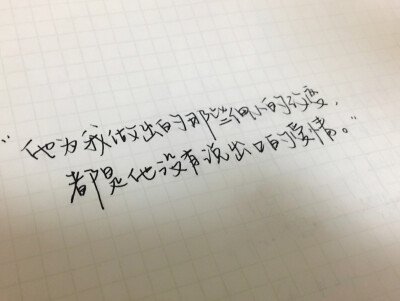 “他为我做出的那些细小的改变，
都是他没有说出口的爱情。”